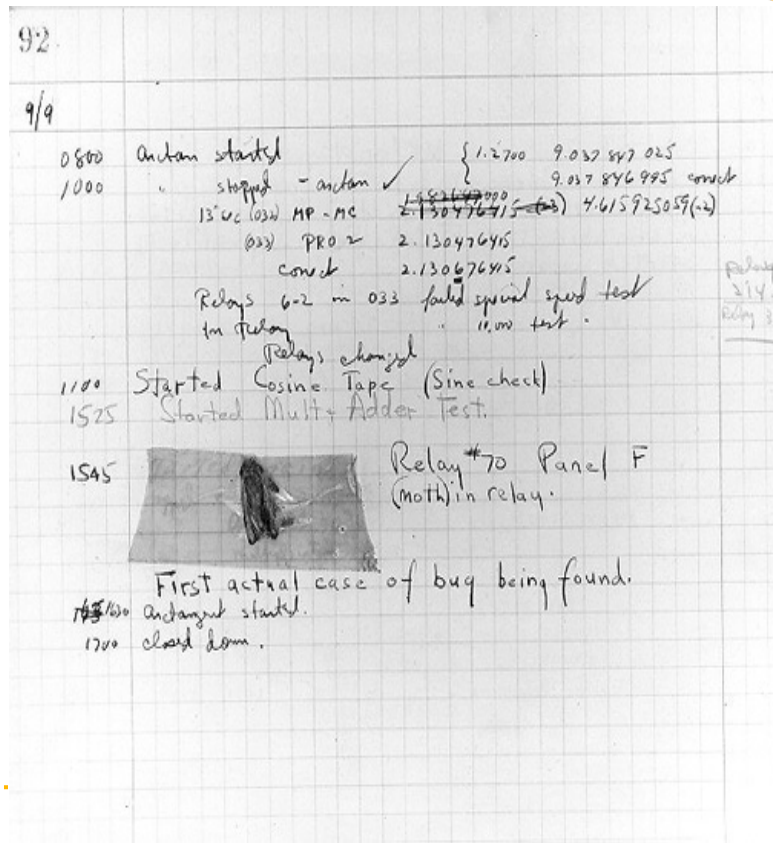 92
9/9
0800 Antan started { 1.2700 9.037 847 025
1000 " stopped - antan ✓ 9.037 846 995 correct
13"uc (032) MP - MC 2.130476415 (-3) 4.615925059(-2)
(033) PRO 2 2.130476415
correct 2.130676415
Relays 6-2 in 033 failed special speed test
In Relay " 10,000 test "
Relays changed
1100 Started Cosine Tape (Sine check)
1525 Started Mult+Adder Test.
1545 Relay #70 Panel F
(moth) in relay.
First actual case of bug being found.
1630 Antangent started.
1700 closed down.
Relay
214
Relay 3